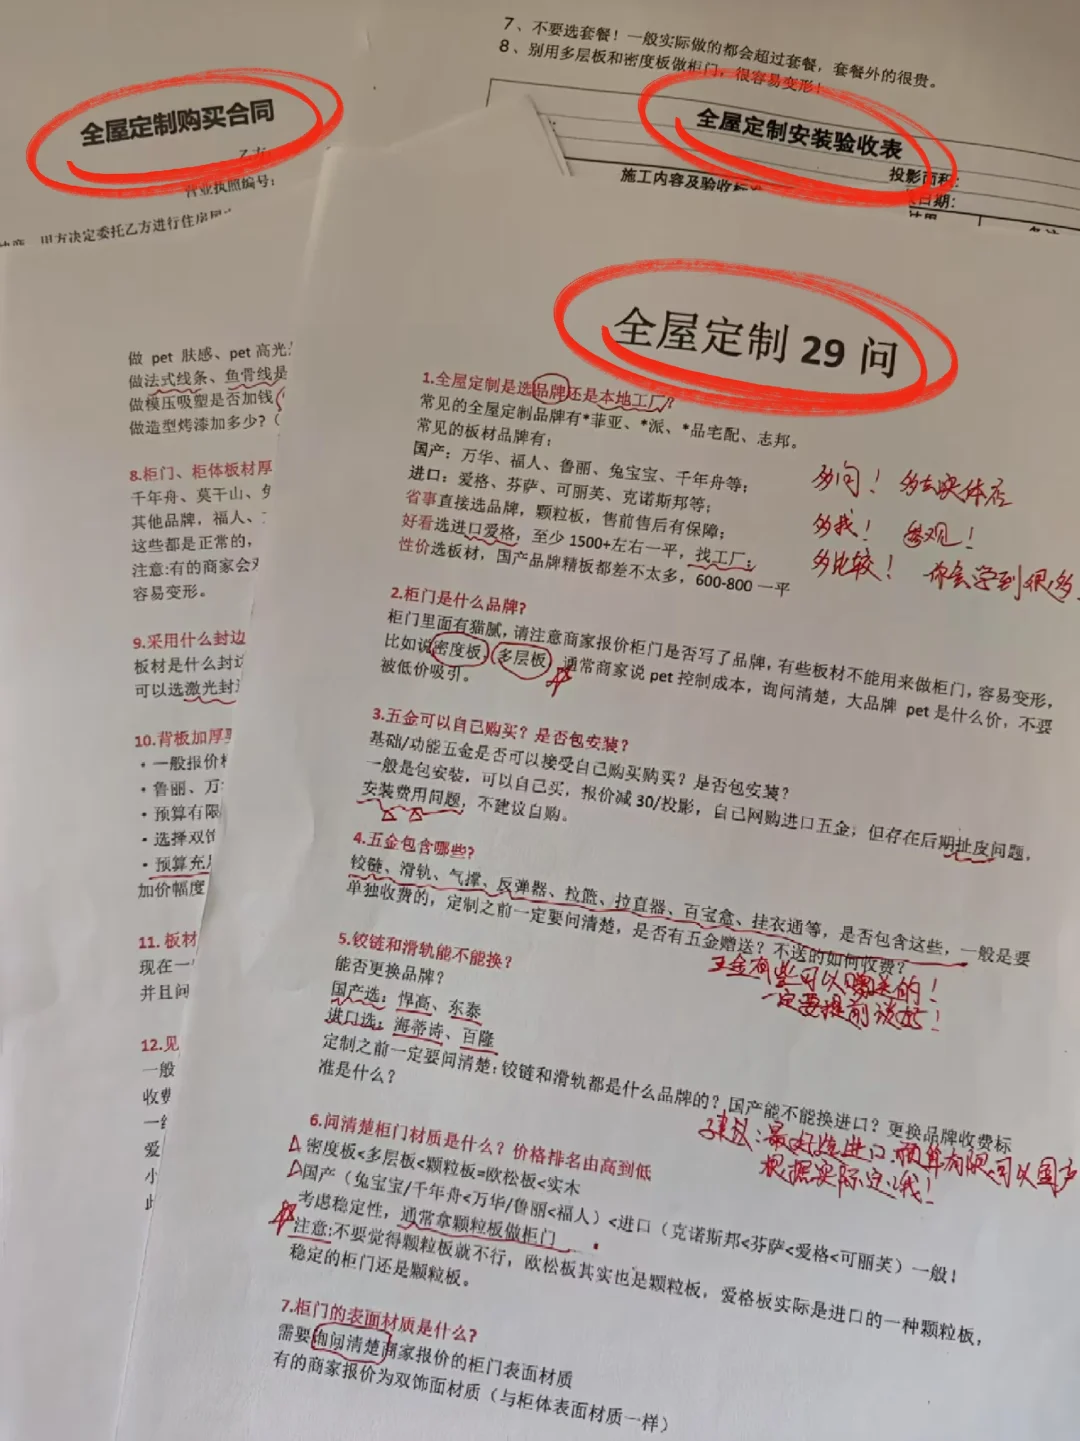 7、不要选套餐！一般实际做的都会超过套餐，套餐外的很贵。
8、别用多层板和密度板做柜门，很容易变形！
全屋定制购买合同
乙方：
营业执照编号：
甲方决定委托乙方进行住房
全屋定制安装验收表
投影面积：
施工内容及验收标
日期：
做 pet 肤感、pet 高光
做法式线条、鱼骨线是
做模压吸塑是否加钱
做造型烤漆加多少？
8.柜门、柜体板材厚
千年舟、莫干山、兔
其他品牌，福人、
这些都是正常的，
注意:有的商家会
容易变形。
9.采用什么封边
板材是什么封边
可以选激光封边
10.背板加厚
·一般报价
·鲁丽、万
·预算有限
·选择双饰
·预算充足
加价幅度
11. 板材
现在一
并且问
12.见
一般
收费
一
爱
小
此
全屋定制 29 问
1.全屋定制是选品牌还是本地工厂？
常见的全屋定制品牌有*菲亚、*派、*品宅配、志邦。
常见的板材品牌有：
国产：万华、福人、鲁丽、兔宝宝、千年舟等；
进口：爱格、芬萨、可丽芙、克诺斯邦等；
省事直接选品牌，颗粒板，售前售后有保障；
好看选进口爱格，至少 1500+左右一平，找工厂；
性价选板材，国产品牌精板都差不太多，600-800 一平
多问！ 多去实体店
多找！ 参观！
多比较！ 你会学到很多
2.柜门是什么品牌?
柜门里面有猫腻，请注意商家报价柜门是否写了品牌，有些板材不能用来做柜门，容易变形，
比如说密度板，多层板，通常商家说 pet 控制成本，询问清楚，大品牌 pet 是什么价，不要
被低价吸引。
3.五金可以自己购买？是否包安装？
基础/功能五金是否可以接受自己购买购买？是否包安装？
一般是包安装，可以自己买，报价减 30/投影，自己网购进口五金，但存在后期扯皮问题，
安装费用问题，不建议自购。
4.五金包含哪些?
铰链、滑轨、气撑、反弹器、拉篮、拉直器、百宝盒、挂衣通等，是否包含这些，一般是要
单独收费的，定制之前一定要问清楚，是否有五金赠送？不送的如何收费？
五金有些可以赠送的！
一定要提前谈好！
5.铰链和滑轨能不能换？
能否更换品牌？
国产选：悍高、东泰
进口选：海蒂诗、百隆
定制之前一定要问清楚：铰链和滑轨都是什么品牌的？国产能不能换进口？更换品牌收费标
准是什么？
建议：最好选进口.预算有限可以国产
根据实际定哦！
6.问清楚柜门材质是什么？价格排名由高到低
密度板<多层板<颗粒板=欧松板<实木
国产（兔宝宝/千年舟<万华/鲁丽<福人）<进口（克诺斯邦<芬萨<爱格<可丽芙）一般！
考虑稳定性，通常拿颗粒板做柜门
注意:不要觉得颗粒板就不行，欧松板其实也是颗粒板，爱格板实际是进口的一种颗粒板，
稳定的柜门还是颗粒板。
7.柜门的表面材质是什么?
需要询问清楚商家报价的柜门表面材质
有的商家报价为双饰面材质（与柜体表面材质一样）